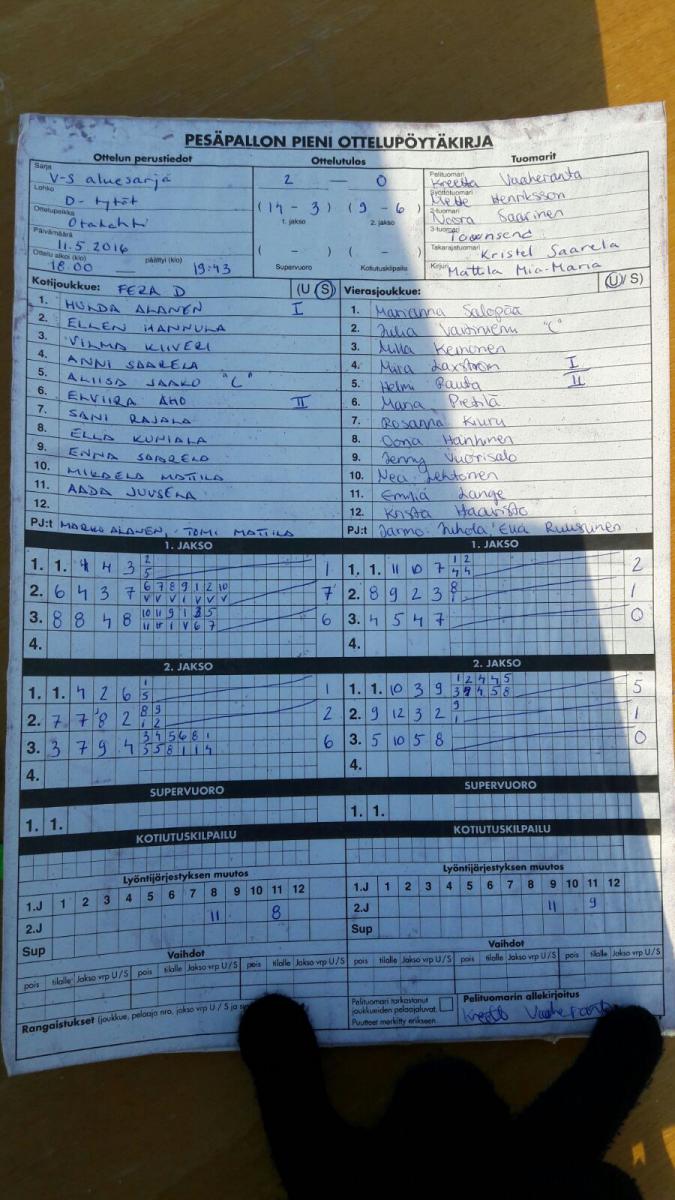 PESÄPALLON PIENI OTTELUPÖYTÄKIRJA
Ottelun perustiedot
Ottelutulos
Tuomarit
Sarja
V-S aluesarja
Lohko
D-tytöt
Ottelupaikka
Otalahti
Päivämäärä
11.5.2016
Ottelu alkoi (klo) päättyi (klo)
18.00 — 19:43
2 — 0
(14 - 3) (9 - 6)
1. jakso 2. jakso
( - ) ( - )
Supervuoro Kotiutuskilpailu
Pelituomari
Kreetta Vaaheranta
Syöttötuomari
Mette Henriksson
2-tuomari
Noora Saarinen
3-tuomari
Townsend
Takarajatuomari
Kristel Saarela
Kirjuri
Mattila Mia-Maria
Kotijoukkue: FERA D (U/S)
1. HULDA ALANEN I
2. ELLEN HANNULA
3. VILMA KIIVERI
4. ANNI SAARELA
5. ALIISA JAAKO "C"
6. ELVIIRA AHO II
7. SANI RAJALA
8. ELLA KUNIALA
9. ENNA SAARELA
10. MIKAELA MATTILA
11. AADA JUUSELA
12.
PJ:t MARKO ALANEN, TOMI MATTILA
Vierasjoukkue: (U/S)
1. Marianna Salopää
2. Julia "C"
3. Milla Keinonen
4. Mira Laxström I
5. Helmi Rauta II
6. Maria Pietilä
7. Rosanna Kiuru
8. Oona Hänninen
9. Jenny Vuorisalo
10. Nea Lehtonen
11. Emilia Lange
12. Krista Haavisto
PJ:t Jarmo Juhola Eva Ruusunen
1. JAKSO
1. 1. 4 4 3 2 1
5
2. 6 4 3 7 6 7 8 9 1 2 10 7
V V V I V V V
3. 8 8 4 8 10 11 9 1 3 5 6
4.
1. JAKSO
1. 1. 11 10 7 1 2 2
4 4
2. 8 9 2 3 8 1
1
3. 4 5 4 7 0
4.
2. JAKSO
1. 1. 4 2 6 1 1
5
2. 7 7 8 2 8 9 2
1 2
3. 3 7 9 4 3 4 5 6 8 1 6
5 5 8 1 1 4
4.
2. JAKSO
1. 1. 10 3 9 1 2 4 4 5 5
3 4 5 8
2. 9 12 3 2 9 1
1
3. 5 10 5 8 0
4.
SUPERVUORO
1. 1.
SUPERVUORO
1. 1.
KOTIUTUSKILPAILU
KOTIUTUSKILPAILU
Lyöntijärjestyksen muutos
1.J 1 2 3 4 5 6 7 8 9 10 11 12
2.J 11 8
Sup
Lyöntijärjestyksen muutos
1.J 1 2 3 4 5 6 7 8 9 10 11 12
2.J 11 9
Sup
Vaihdot
pois tilalle Jakso vrp U/S pois tilalle Jakso vrp U/S pois tilalle Jakso vrp U/S
Vaihdot
pois tilalle Jakso vrp U/S pois tilalle Jakso vrp U/S
Rangaistukset (joukkue, pelaaja nro, jakso vrp U/S ja
Pelituomari tarkastanut
joukkueiden pelaajaluvat.
Puutteet merkitty erikseen
Pelituomarin allekirjoitus
Kreetta Vaaheranta